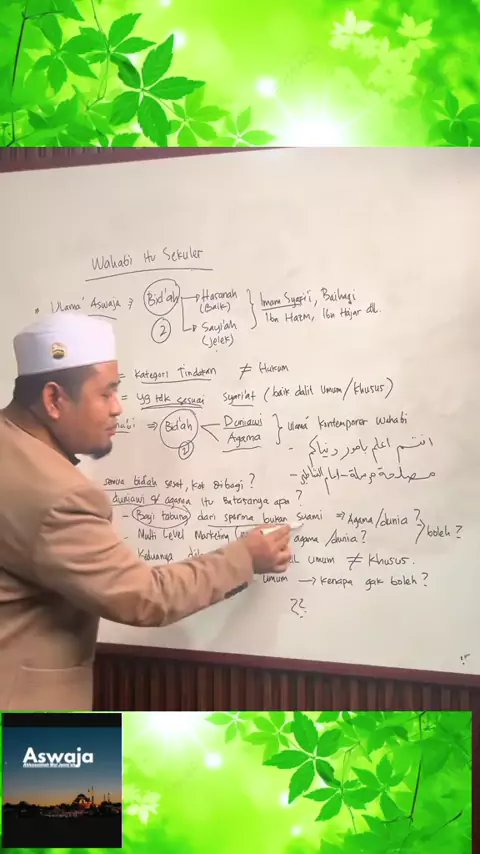 Wahabi itu Sekuler
* Ulama' Aswaja ⇒ Bid'ah
Hasanah
(Baik)
Sayi'ah
(Jelek)
(2)
Imam Syafi'i, Baihaqi
Ibn Hazm, Ibn Hajar dll.
= Kategori Tindakan ≠ Hukum
= yg tdk sesuai Syari'at (baik dalil umum/khusus)
⇒ Bid'ah
Duniawi
Agama
(2)
Ulama' kontemporer Wahabi
- انتم اعلم بامور دنياكم
- مصلحة مرسلة - امام الشاطبي
semua bid'ah sesat, kok dibagi?
duniawi & agama itu batasanya apa?
- Bayi tabung dari sperma bukan suami ⇒ Agama/dunia?
- Multi Level Marketing agama/dunia?
boleh?
Keduanya umum ≠ khusus.
umum → kenapa gak boleh?
??
Aswaja